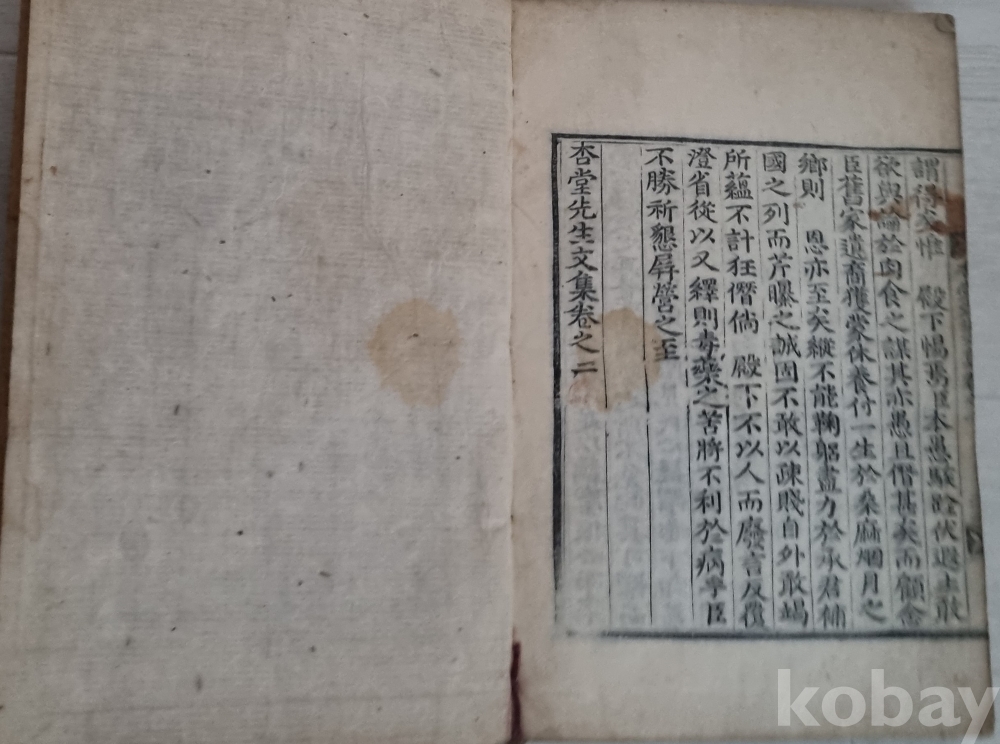 謂得矣惟 殿下惕焉臣本愚騃跧伏遐土敢
欲與論於肉食之謀其亦愚且僭甚矣而顧念
臣舊家遺裔獲蒙休養付一生於桑麻烟月之
鄕則 恩亦至矣縱不能鞠躬盡力於承君補
國之列而芹曝之誠固不敢以疎賤自外敢竭
所蘊不計狂僭倘 殿下不以人而廢言反覆
澄省從以又繹則毒藥之苦將不利於病乎臣
不勝祈懇屛營之至
杏堂先生文集卷之二
kobay